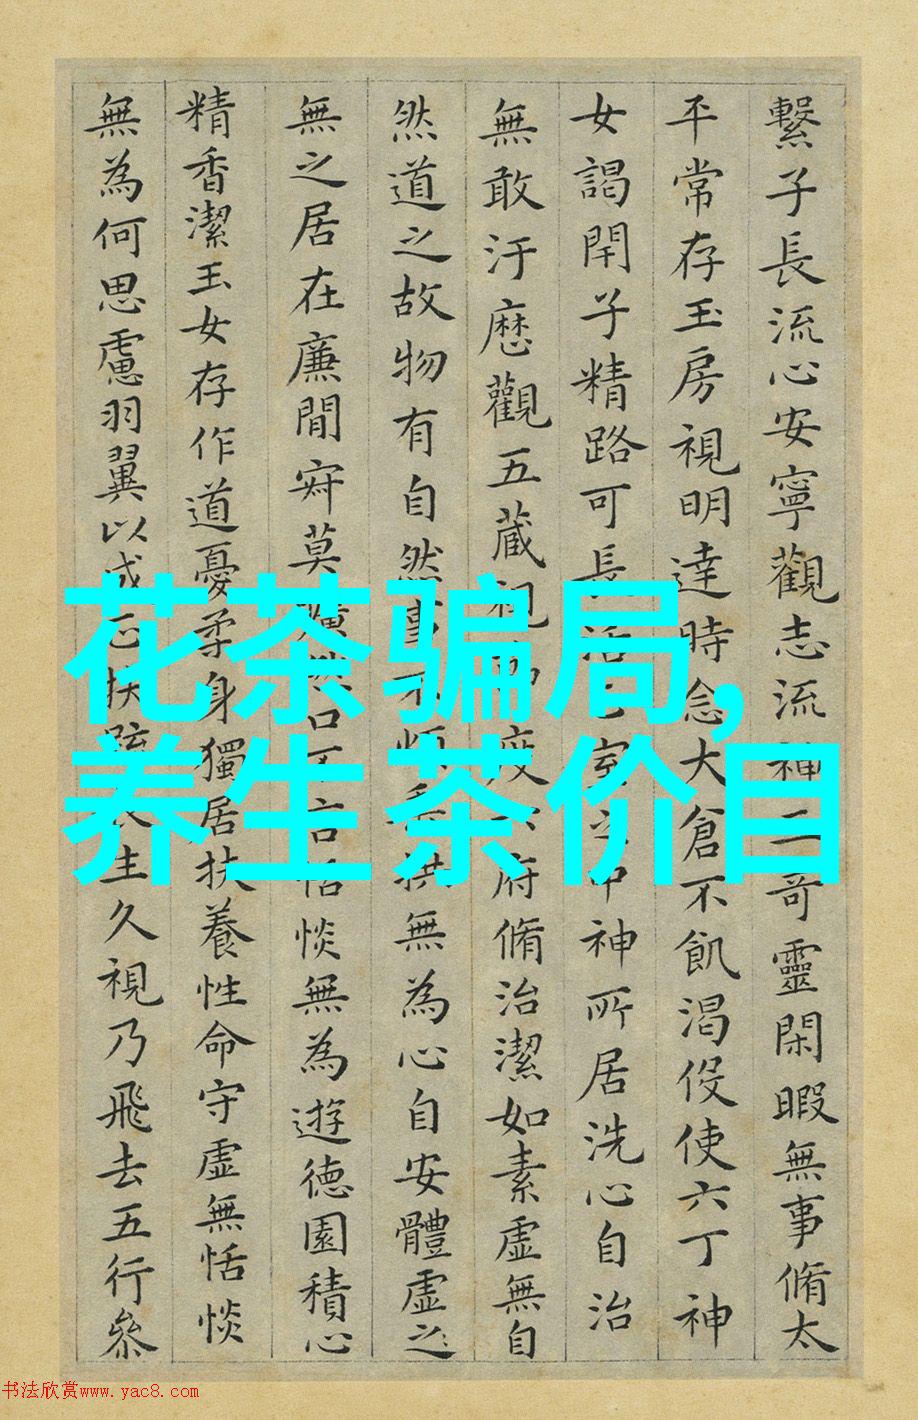 繫子長流心安寧觀志流神三奇靈閑暇無事脩太
平常存玉房視明達時念大倉不飢渴伇使六丁神
女謁閇子精路可長活
室之中神所居洗心自治
無敢汙歷觀五藏視
度六府脩治潔如素虛無自
然道之故物有自然事不煩垂拱無為心自安體虛之
無之居在廉閒寂莫
口不言恬惔無為遊德園積心
精香潔玉女存作道憂柔身獨居扶養性命守虛無恬惔
無為何思慮羽翼以成正扶疏
生久視乃飛去五行參
花茶骗局,
养生茶价目
书法欣赏www.yac8.com